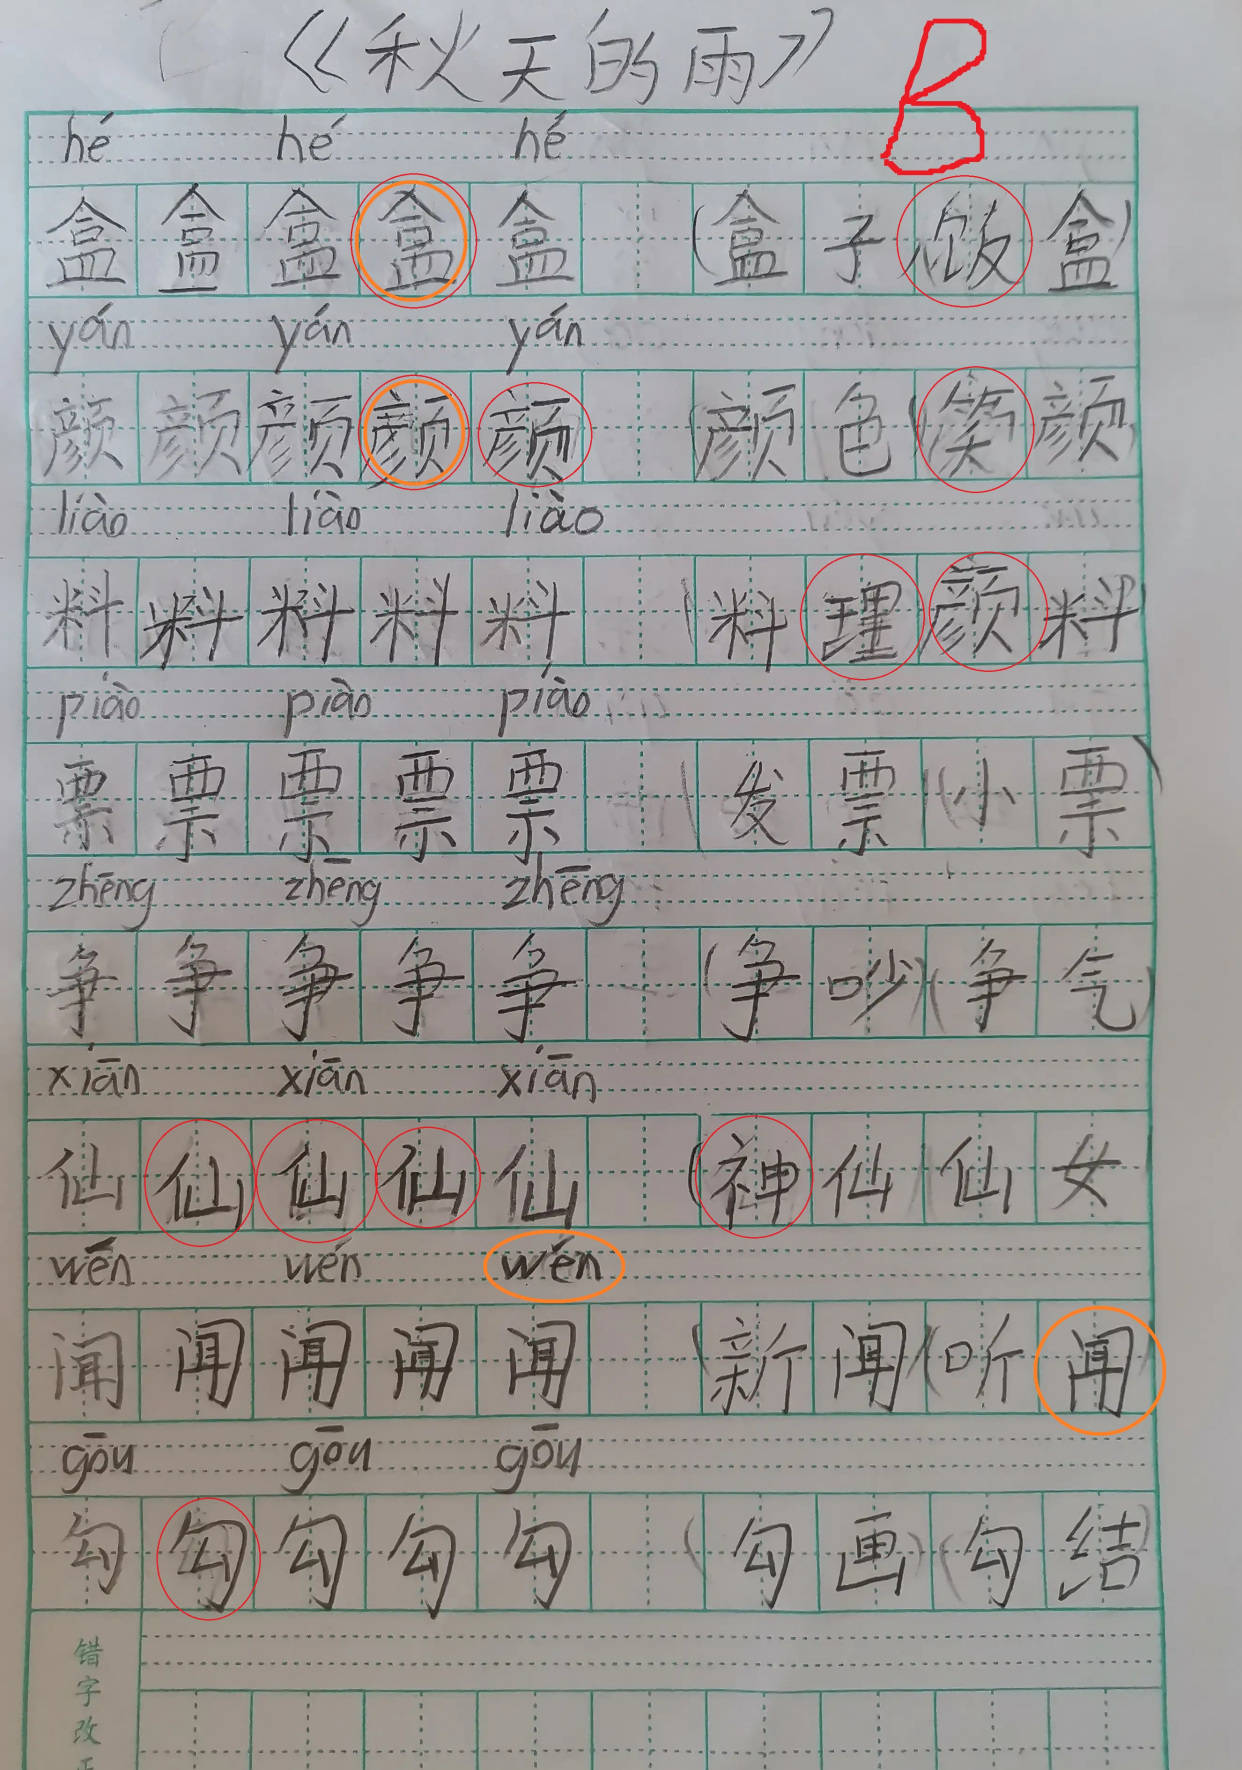 《秋天的雨》 B
hé hé hé
盒 盒 盒 盒 盒 (盒 子 饭 盒)
yán yán yán
颜 颜 颜 颜 颜 (颜 色 (笑 颜
liào liào liào
料 料 料 料 料 (料 理 颜 料)
piào piào piào
票 票 票 票 票 (发 票 (小 票)
zhēng zhēng zhēng
争 争 争 争 争 (争 吵)(争 气)
xiān xiān xiān
仙 仙 仙 仙 仙 (神 仙 仙 女
wēn wén wén
闻 闻 闻 闻 闻 (新 闻)(听 闻)
gōu gōu gōu
勾 勾 勾 勾 勾 (勾 画)(勾 结)
错字改正